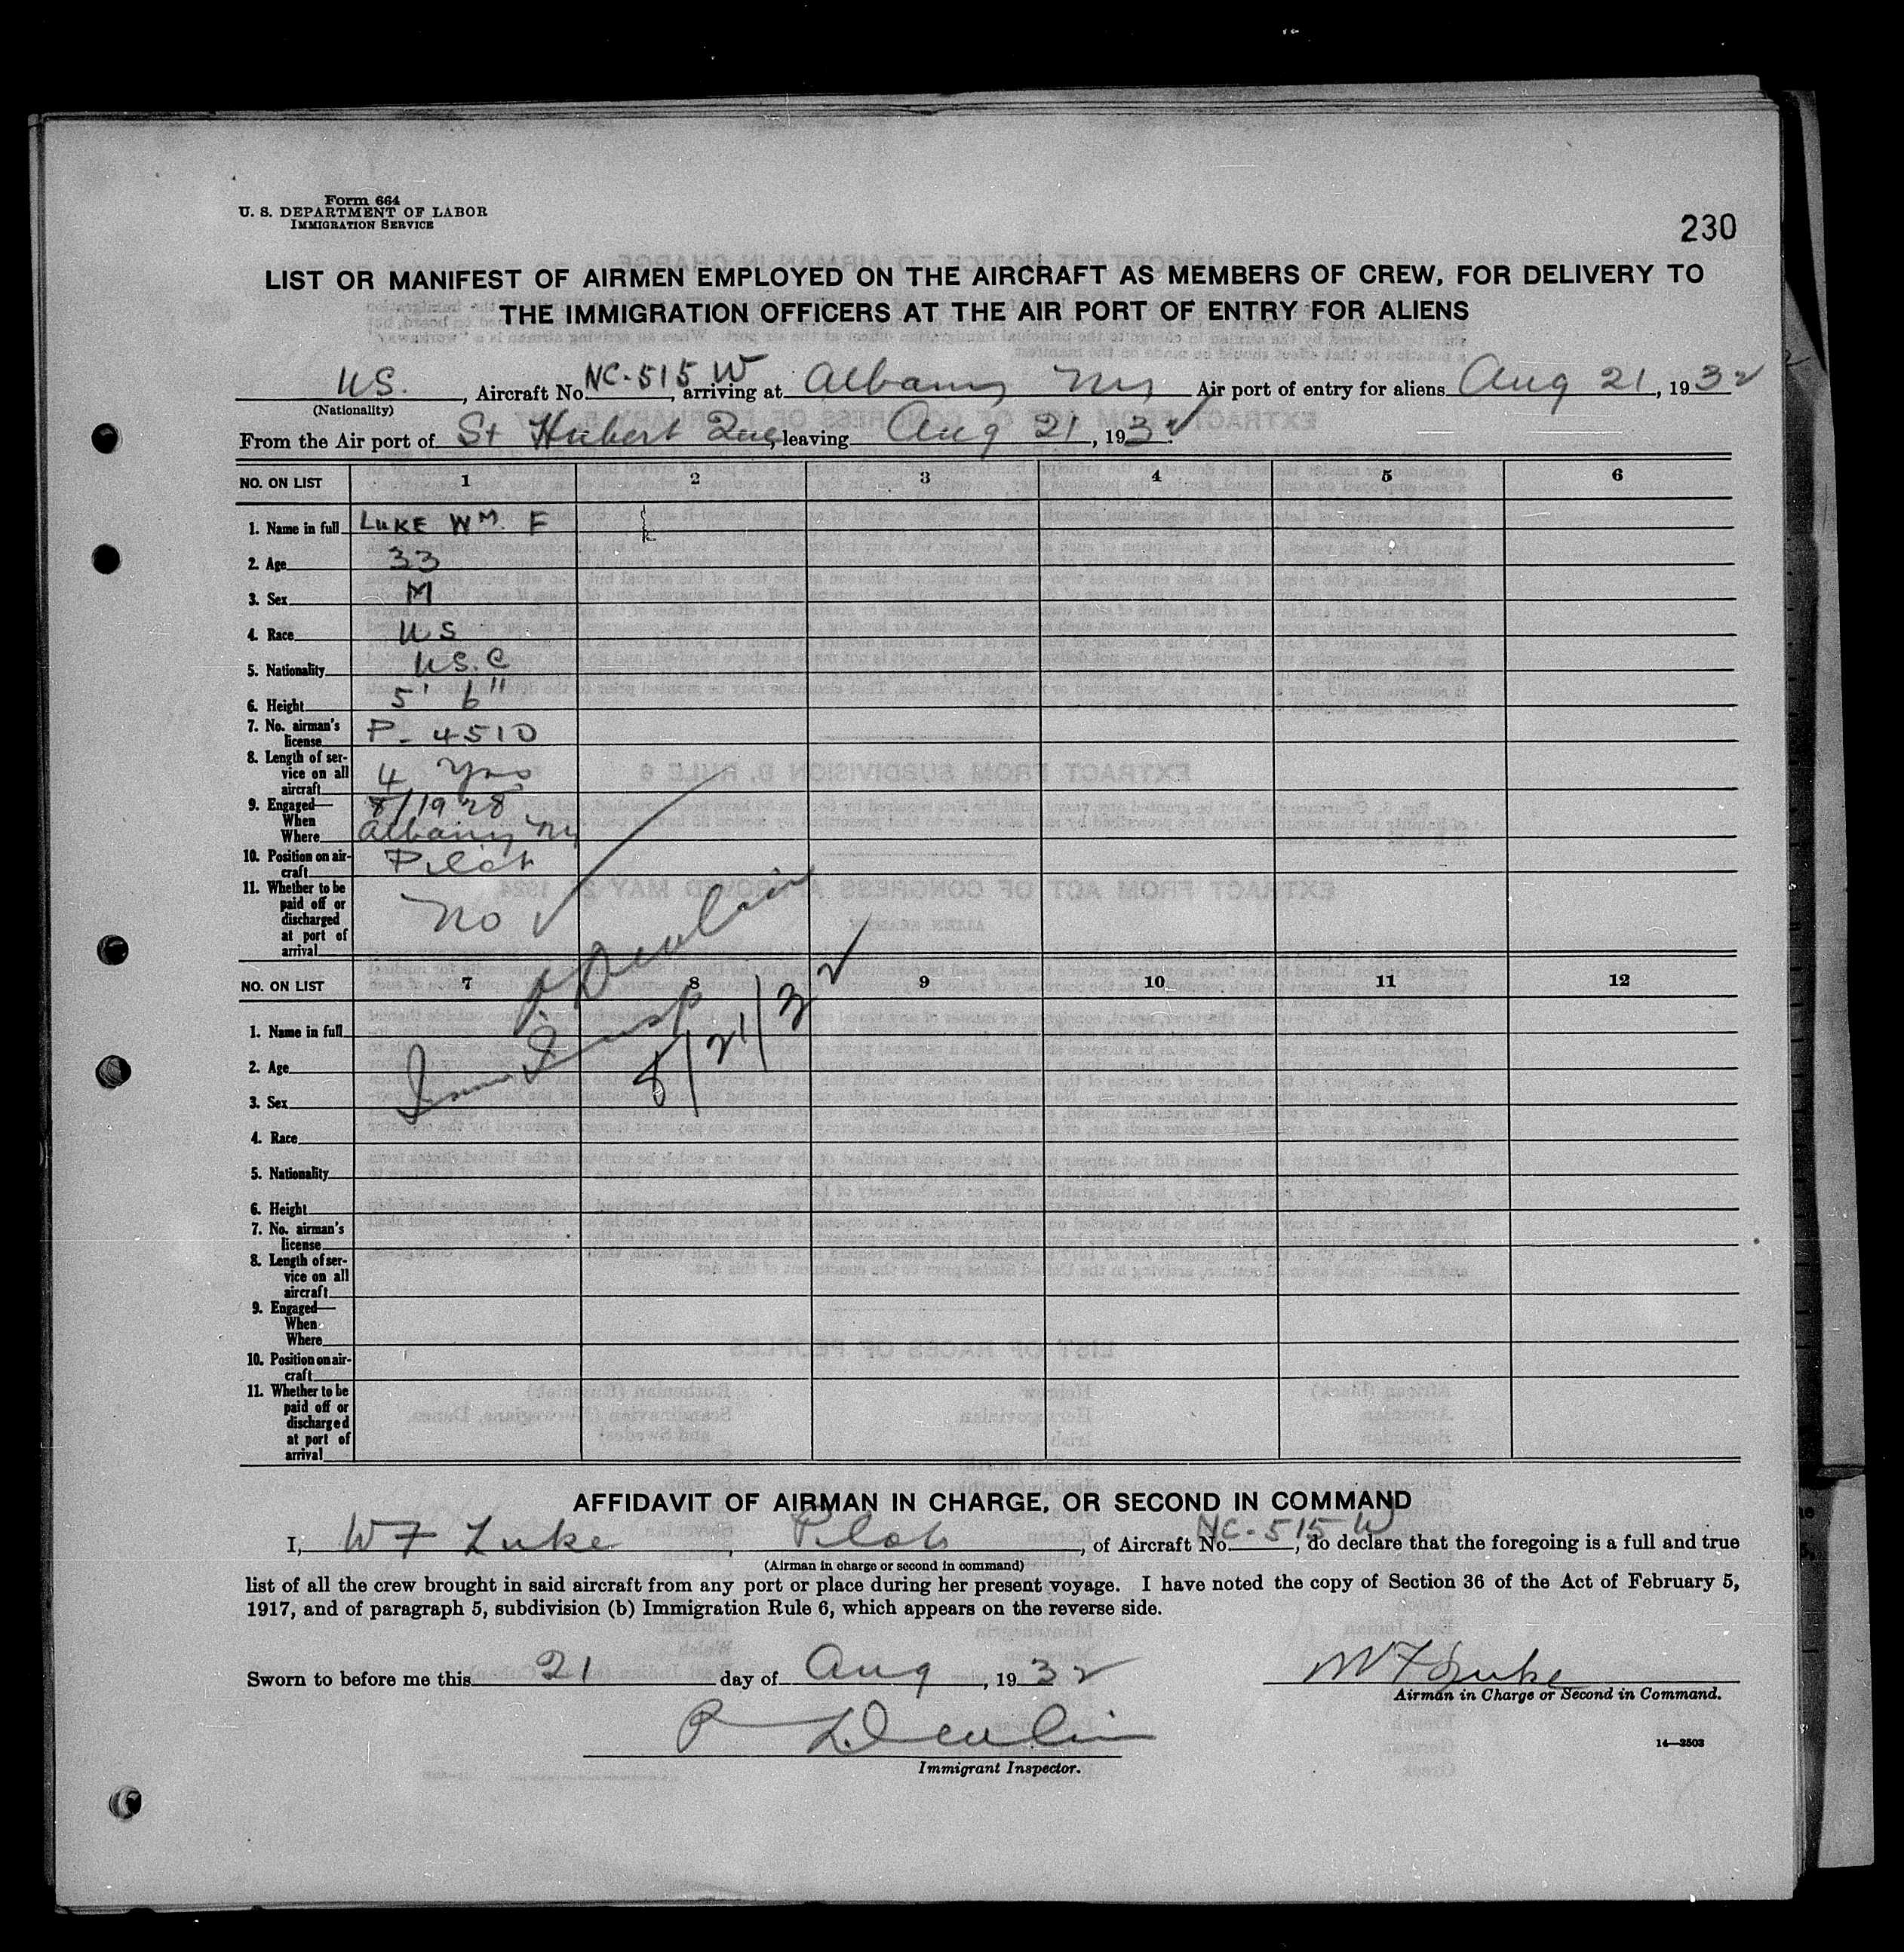 Form 664
U. S. DEPARTMENT OF LABOR
IMMIGRATION SERVICE
230
LIST OR MANIFEST OF AIRMEN EMPLOYED ON THE AIRCRAFT AS MEMBERS OF CREW, FOR DELIVERY TO
THE IMMIGRATION OFFICERS AT THE AIR PORT OF ENTRY FOR ALIENS
US., Aircraft No. NC-515 W, arriving at Albany Ny Air port of entry for aliens Aug 21, 1932
(Nationality)
From the Air port of St Hubert Que, leaving Aug 21, 1932.
NO. ON LIST 1 2 3 4 5 6
1. Name in full LUKE WM. F
2. Age 33
3. Sex M
4. Race US
5. Nationality US.C
6. Height 5' 6"
7. No. airman's
license P-4510
8. Length of ser-
vice on all
aircraft 4 Yrs
9. Engaged—
When 8/1928
Where Albany Ny
10. Position on air-
craft Pilot
11. Whether to be
paid off or
discharged
at port of
arrival No
P Devlin
Imm Insp 8/21/32
NO. ON LIST 7 8 9 10 11 12
1. Name in full
2. Age
3. Sex
4. Race
5. Nationality
6. Height
7. No. airman's
license
8. Length of ser-
vice on all
aircraft
9. Engaged—
When
Where
10. Position on air-
craft
11. Whether to be
paid off or
discharged
at port of
arrival
AFFIDAVIT OF AIRMAN IN CHARGE, OR SECOND IN COMMAND
I, W F Luke, Pilot, of Aircraft No. NC-515 W, do declare that the foregoing is a full and true
(Airman in charge or second in command)
list of all the crew brought in said aircraft from any port or place during her present voyage. I have noted the copy of Section 36 of the Act of February 5,
1917, and of paragraph 5, subdivision (b) Immigration Rule 6, which appears on the reverse side.
Sworn to before me this 21 day of Aug, 1932
W F Luke
Airman in Charge or Second in Command.
P Devlin
Immigrant Inspector.
14—2503